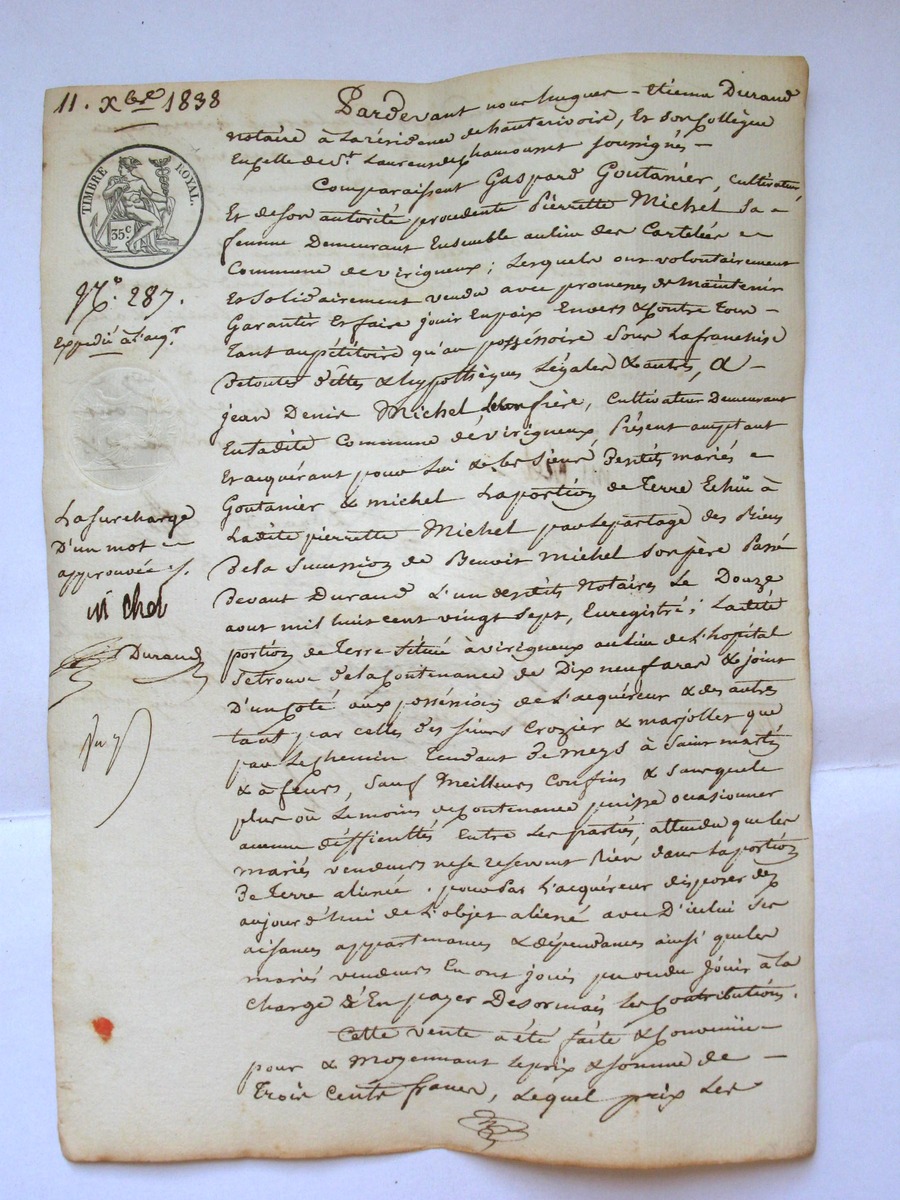 11. Xbre 1838
TIMBRE ROYAL.
35c
No. 287.
Expédié à l'aqr
La surcharge
D'un mot
approuvée
michel
Durand
Pardevant nous hugues - Etienne Durand
notaire à La résidence de hauterivoire, Et son Collègue
En celle de St. Laurens de Chamousset soussignés -
Comparaissent Gaspard Goutanier, cultivateur
Et de son autorité procedente Pierrette Michel Sa
femme Demeurant Ensemble au lieu des Cartelées
Commune de virigneux ; Lesquels ont volontairement
Et Solidairement vendu avec promesses de Maintenir
Garantir Et faire jouir En paix Envers & Contre tous
tant au pétitoire qu'au possessoire Sous La franchise
De toutes dettes & hypothèques Légales & autres, à -
jean Denis Michel frère, Cultivateur Demeurant
En ladite Commune de virigneux Présent acceptant
Et acquérant pour Lui & les Siens desdits mariés
Goutanier & michel La portion de Terre Echüe à
Ladite pierrette Michel par le partage des Biens
De la Succession de Benoit Michel Son père Passé
Devant Durand L'un desdits Notaires Le Douze
aout mil huit cent vingt Sept, Enregistré ; Ladite
portion de Terre Située à virigneux au lieu de L'hopital
Se trouve de la Contenance de Dix neuf aras & joint
D'un Coté aux possessions de L'acquéreur & des autres
tant par celles des Sieurs Crozier & marjollet que
par Le chemin Tendant de meys à Saint martin
& à feurs, Sauf Meilleurs Confins & Sans que le
plus où Le moins de Contenance puisse occasionner
aucune difficultés Entre Les parties, attendu que les
mariés vendeurs ne se reservent Rien dans La portion
De Terre alienée . pour par L'acquéreur disposer dez
aujourd'hui de L'objet aliené avec D'icelui Ses
aisances appartenances & dépendances ainsi que les
mariés vendeurs En ont jouis pu ou du jouir à la
charge d'En payer Desormais les Contributions.
Cette vente a été faite & Convenüe
pour & Moyennant le prix & Somme de -
Trois Cents francs, Lequel prix Les